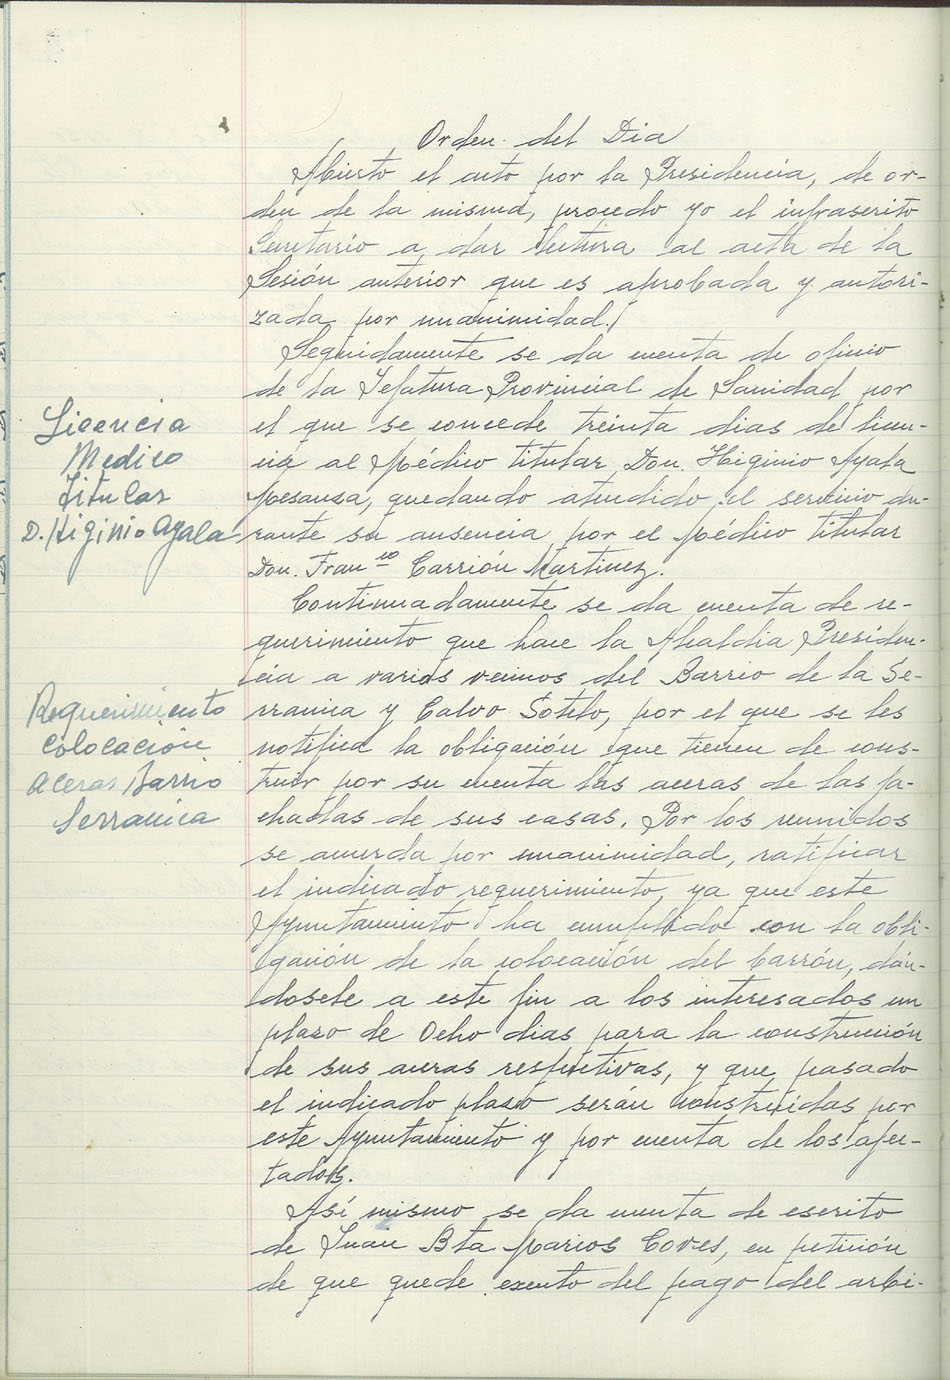 Orden del Dia
Abierto el acto por la Presidencia, de or-
den de la misma, procedo yo el infrascrito
Secretario a dar lectura al acta de la
Sesión anterior que es aprobada y autori-
zada por unanimidad./
Seguidamente se da cuenta de oficio
de la Jefatura Provincial de Sanidad por
el que se concede treinta dias de licen-
cia al Médico titular Don. Higinio Ayala
Mesanza, quedando atendido el servicio du-
rante su ausencia por el Médico titular
Don. Franco Carrión Martinez.
Licencia
Medico
Titular
D. Higinio Ayala
Continuadamente se da cuenta de re-
querimiento que hace la Alcaldia Presiden-
cia a varios vecinos del Barrio de la Se-
rranica y Calvo Sotelo, por el que se les
notifica la obligación que tienen de cons-
truir por su cuenta las aceras de las fa-
chadas de sus casas. Por los reunidos
se acuerda por unanimidad, ratificar
el indicado requerimiento, ya que este
Ayuntamiento ha cumplido con la obli-
gación de la colocación del barrón, dán-
dosele a este fin a los interesados un
plazo de Ocho dias para la construcción
de sus aceras respectivas, y que pasado
el indicado plazo serán construidas por
este Ayuntamiento y por cuenta de los afec-
tados.
Requerimiento
colocación
aceras Barrio
Serranica
Así mismo se da cuenta de escrito
de Juan Bta. Marcos Coves, en petición
de que quede exento del pago del arbi-